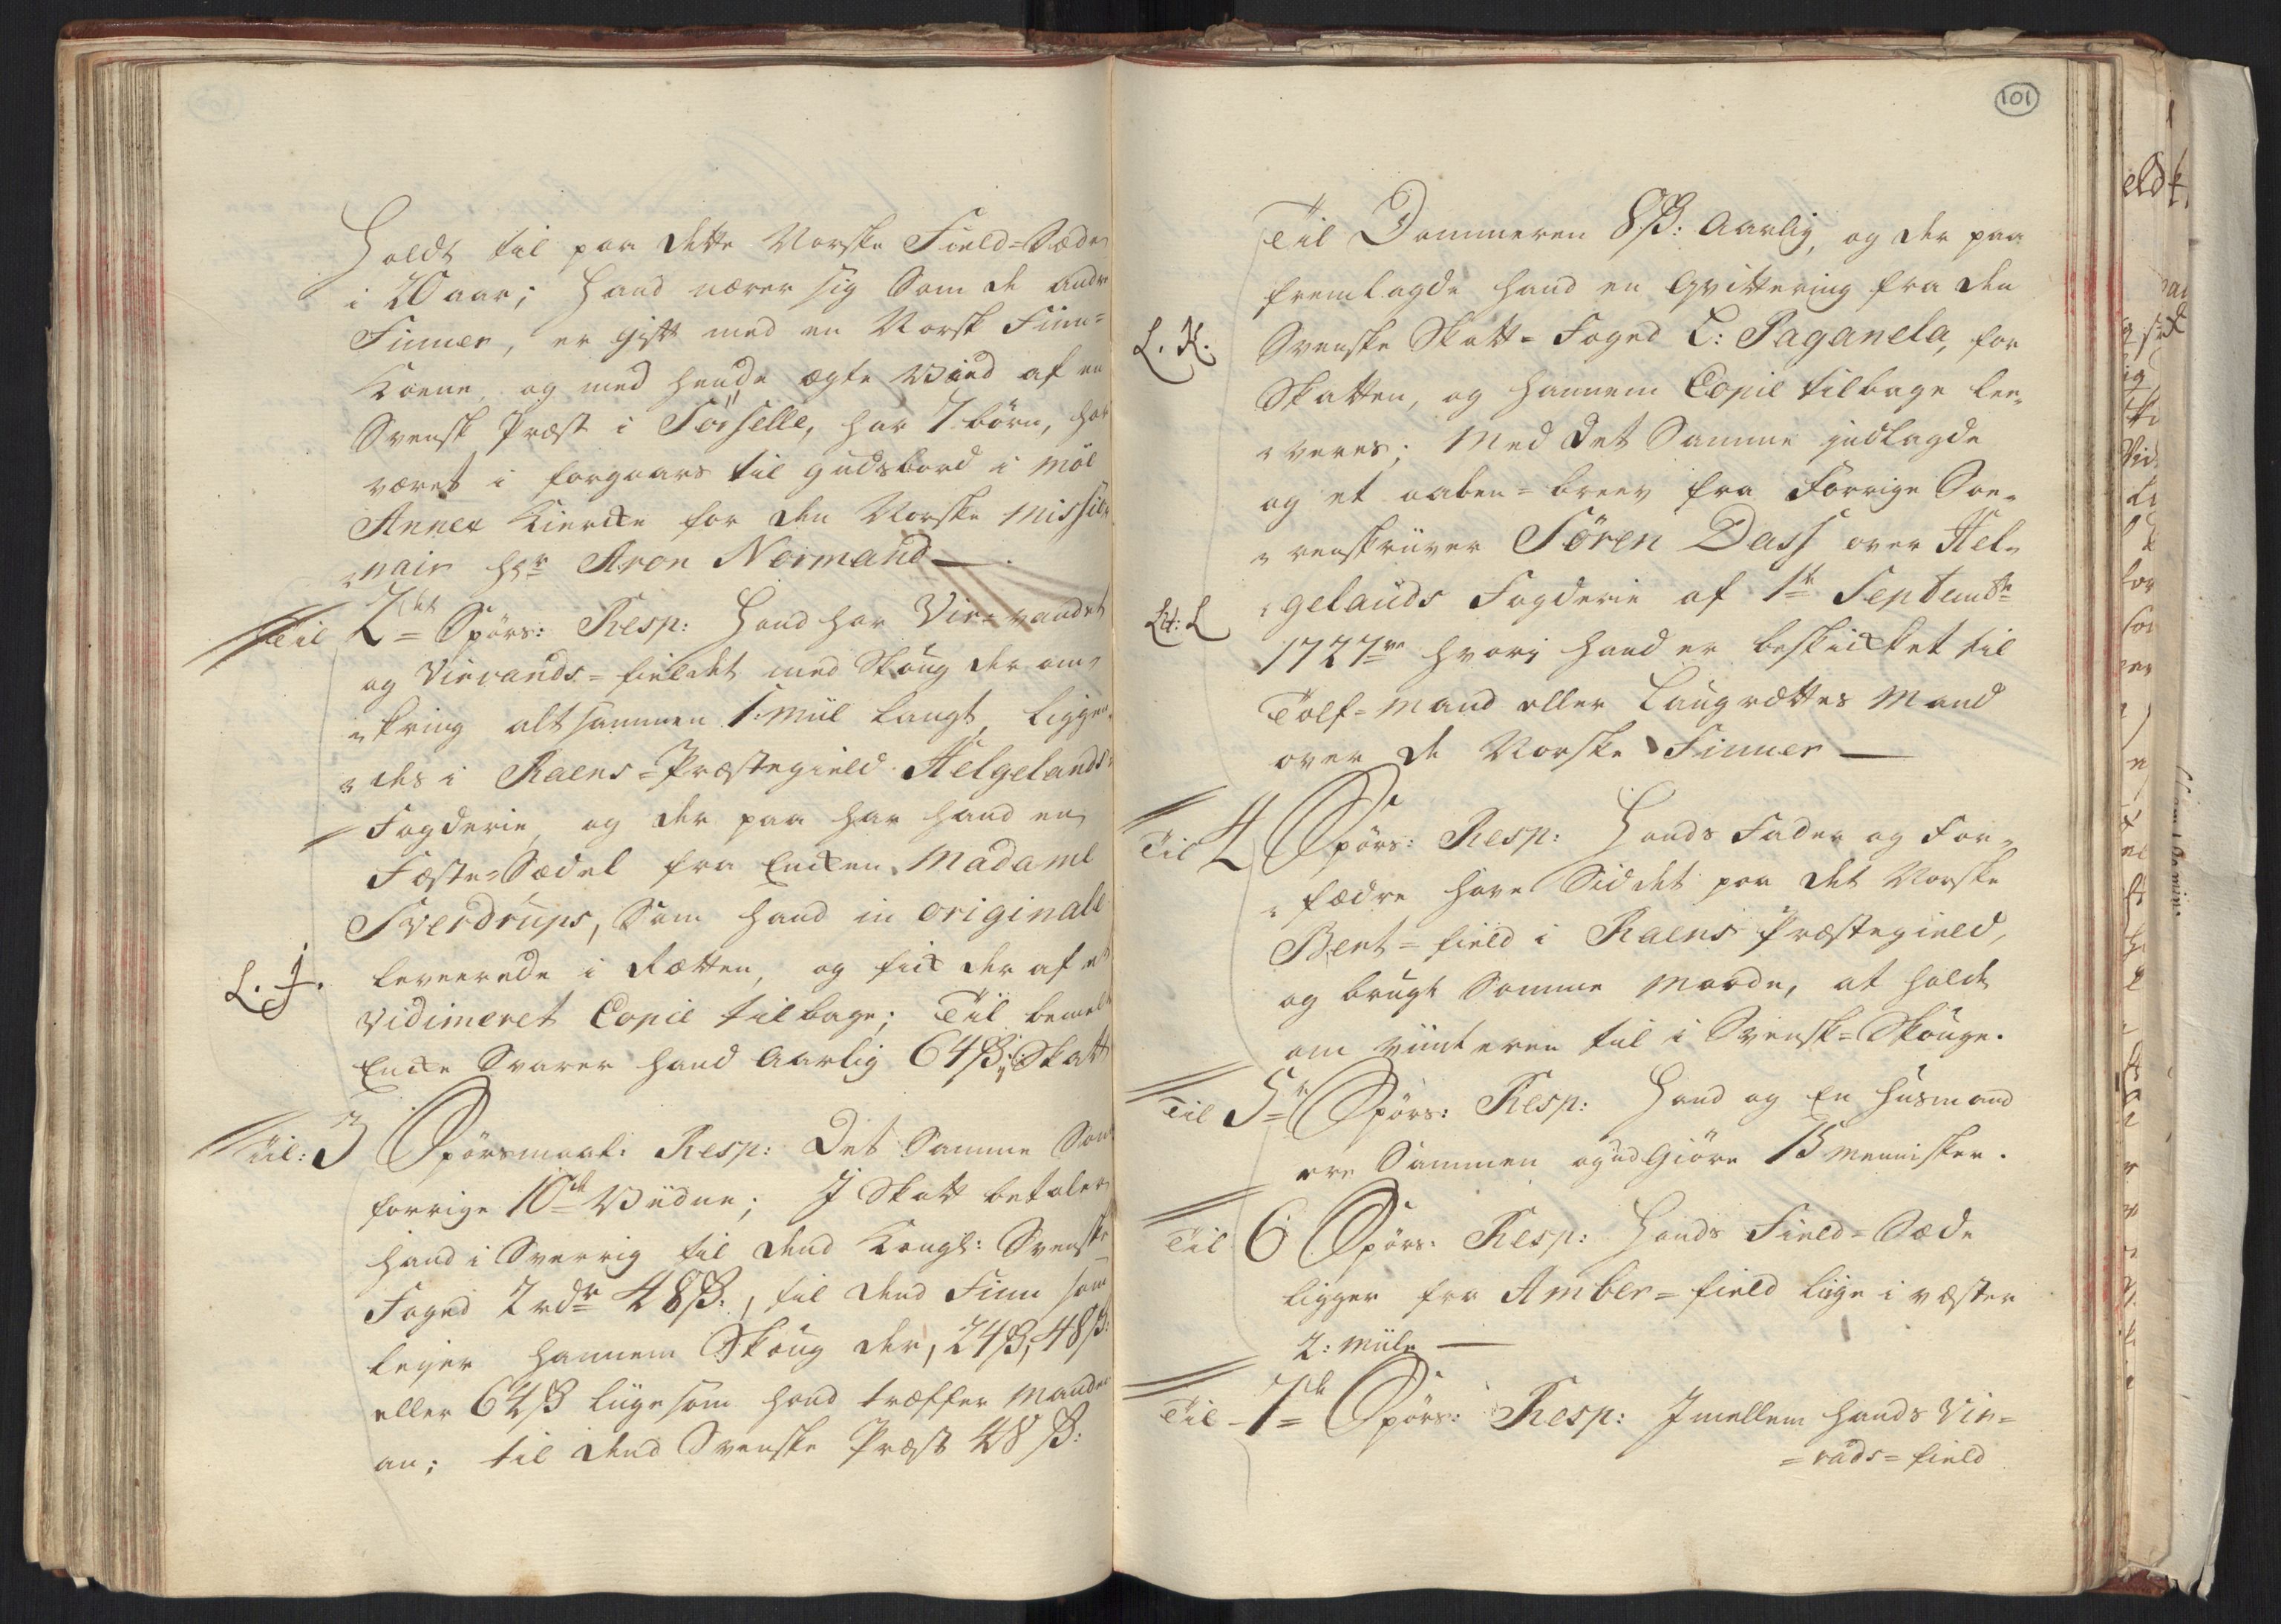 Holdt til paa dette Norske Field=Sæde
i 20 aar; hand nærer sig Som de andre
Finner, er gift med en Norsk Finne=
Koene, og med hende ægte Viid af en
Svensk Præst i Sörselle, har 7 börn, har
været i forgaars til gudsbord i Möe
Annex Kiercke for den Norske Missio„
„nair hr Aron Normand —.
Til 2det Spörs: Resp: Hand har Vir=vandet
og Virvands=fieldet med Skoug der om„
„kring altsammen 1: Miil langt, liggen„
„des i Raens=Præstegield Helgelands
Fogderie, og der paa har hand en
Fæste=Sædel fra Encken Madame
Sverdrups, Som hand in originale
L. J. leveerede i Rætten, og fick der af et
Vidimeret Copie tilbage; Til bemelte
Encke Svarer hand Aarlig 64 ß: Skatt
Til: 3 Spörsmaal: Resp: Det Samme Som
forrige 10de Viidne; J Skatt betaler
hand i Sverrig til dend Kongl: Svenske
Foged 2 rdr 48 ß:, til dend Finn som
leyer hannem Skoug der, 24 ß, 48 ß:
eller 64 ß liige som hand træffer Manden
an; til dend Svenske Præst 48 ß:
101
Til Dommeren 8 ß: Aarlig, og der paa
fremlagde hand en Qvittering fra den
L. K. Svenske Skatt=Foged C: Paganela, for
Skatten, og hannem Copie tilbage lee„
„veres; Med det Samme indlagde
og et aaben=breev fra Forrige Soe„
„renskriiver Sören Dass over Hel„
Lit: L „gelands Fogderie af 1te Septembr
1727ve hvori hand er beskicket til
Tolf=Mand eller Laugrættes Mand
over de Norske Finner —
Til 4 Spörs: Resp: Hands Fader og For„
„fædre have Siddet paa det Norske
Bent=field i Raens Præstegield,
og brugt Samme Maade, at holdt
om vinteren til i Svensk=Skouge.
Til 5te Spörs: Resp: Hand og En Husmand
ere Sammen og udgiöre 15 Mennisker.
Til 6 Spörs: Resp: Hands Field=Sæde
ligger fra Amber=field liige i væster
2: Miile —
Til 7de Spörs: Resp: Jmellem hands Vir=
=vads=field